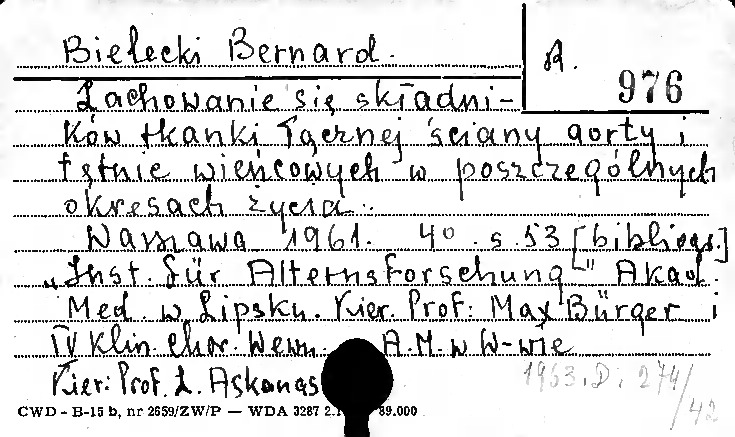 Bielecki Bernard.
R.
976
Zachowanie się składni-
ków tkanki łącznej ściany aorty i
tętnic wieńcowych w poszczególnych
okresach życia.
Warszawa 1961. 4° s. 53 [bibliogr.]
„Inst. für Alternsforschung" Akad.
Med. w Lipsku. Kier. Prof: Max Bürger i
IV Klin. Chor. Wewn. A.M. w W-wie
Kier: Prof. Z. Askanas
1963. D. 274/
/42
CWD - B-15 b, nr 2659/ZW/P — WDA 3287 2.1 89.000